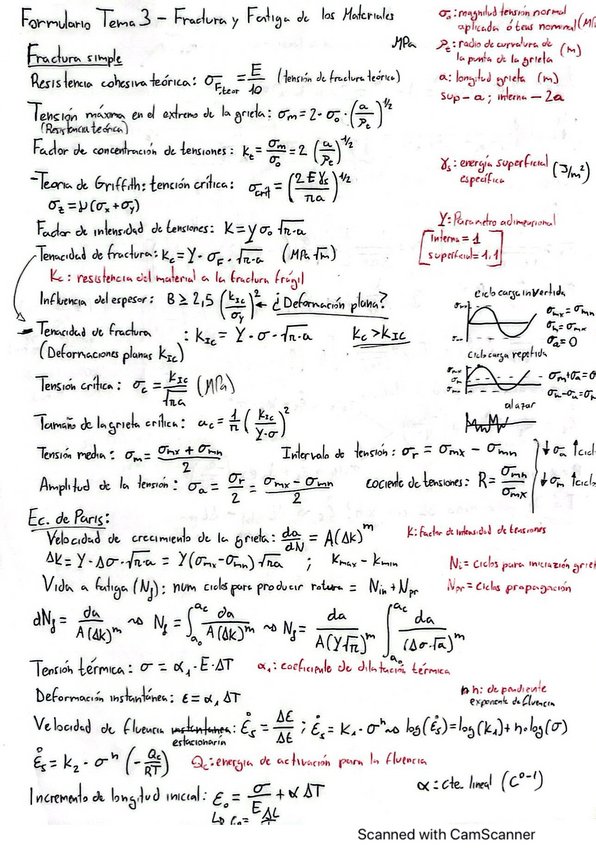 Formulario Tema 3 - Fractura y Fatiga de los Materiales
σ₀: magnitud tensión normal
aplicada ó tens nominal (MPa
MPa
ρt: radio de curvatura de (m)
la punta de la grieta
a: longitud grieta (m)
sup - a; interna - 2a
Fractura simple
Resistencia cohesiva teórica: σFteor = E/10 (tensión de fractura teórica)
Tensión máxima en el extremo de la grieta: σm = 2·σ₀·(a/ρt)^1/2
(Resistencia teórica)
Factor de concentración de tensiones: Kt = σm/σ₀ = 2(a/ρt)^1/2
γs: energía superficial (J/m²)
específica
-Teoria de Griffith: tensión crítica: σcrit = (2Eγs/πa)^1/2
σz = ν(σx+σy)
Factor de intensidad de tensiones: K = Yσ₀√π·a
Y: Parametro adimensional
interna = 1
superficial = 1,1
Tenacidad de fractura: Kc = Y·σF·√π·a (MPa √m)
Kc: resistencia del material a la fractura frágil
Influencia del espesor: B ≥ 2,5 (KIc/σy)² ← ¿Deformación plana?
Ciclo carga invertida
σmx = σmn
σm = σmx
σa = 0
- Tenacidad de fractura : KIc = Y·σ·√π·a Kc > KIC
(Deformaciones planas KIc)
Ciclo carga repetida
σmx+σa=0
σm-σa=0
Tensión crítica: σc = KIc/√πa (MPa)
al azar
Tamaño de la grieta crítica: ac = 1/π (KIc/Y·σ)²
Tensión media: σm = σmx + σmn/2 Intervalo de tensión: σr = σmx - σmn ↓σa ↑cicl
Amplitud de la tensión: σa = σr/2 = σmx - σmn/2 cociente de tensiones: R = σmn/σmx ↓σa ↑ciclo
Ec. de Paris:
Velocidad de crecimiento de la grieta: da/dN = A(ΔK)^m K: Factor de intensidad de tensiones
ΔK = Y·Δσ·√π·a = Y(σmx-σmn)√πa ; Kmax - Kmin Ni = ciclos para iniciación griet
Vida a fatiga (Nf): num ciclos para producir rotura = Nin + Npr Npr = Ciclos propagación
dNf = da/A(ΔK)^m ~> Nf = ∫a₀^ac da/A(ΔK)^m ~> Nf = da/A(Y√π)^m ∫a₀^ac da/(Δσ·√a)^m
Tensión térmica: σ = α₁·E·ΔT α₁: coeficiente de dilatación térmica
Deformación instantánea: ε = α₁ ΔT
n: dependiente
exponente de fluencia
Velocidad de fluencia instantánea: ε̊s = Δε/Δt ; ε̊s = K₁·σ^n ~> log(ε̊s) = log(K₁)+n·log(σ)
estacionaria
ε̊s = K₂·σ^n (-Qc/RT) Qc: energía de activación para la fluencia
α: cte lineal (C°-1)
Incremento de longitud inicial: ε₀ = σ/E + αΔT
ΔL
Scanned with CamScanner